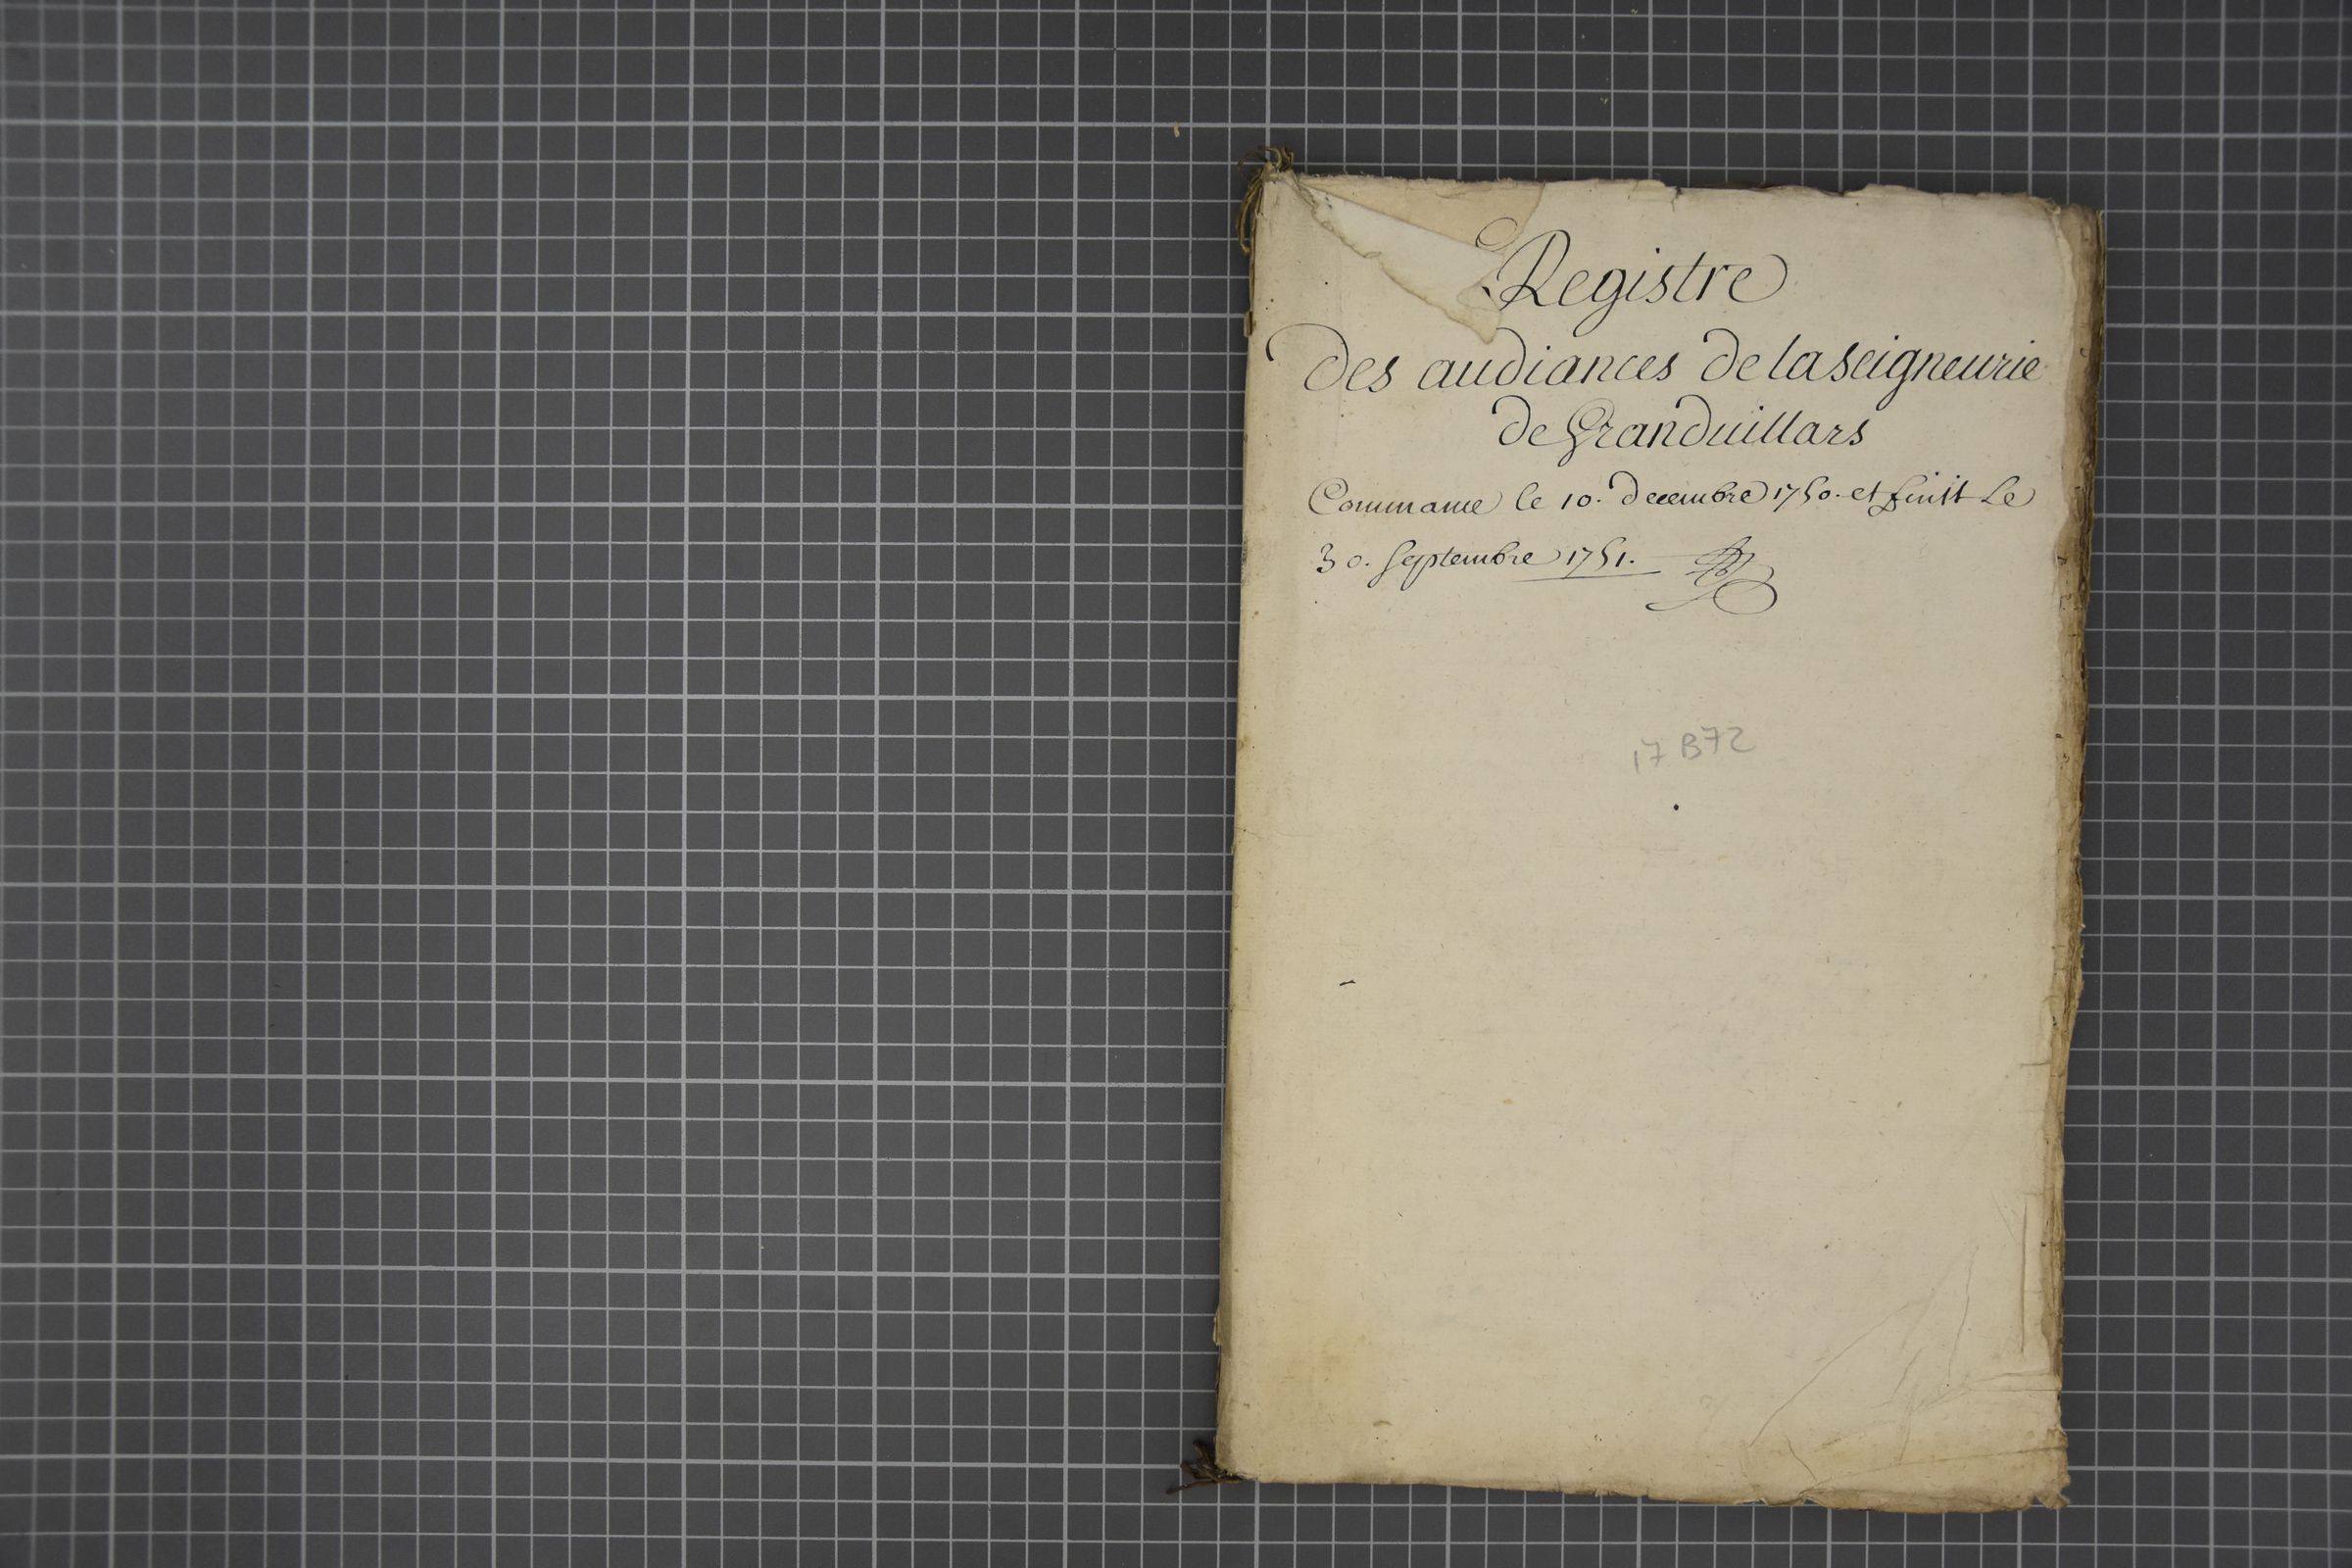 Registre
des audiances de la seigneurie
de Granduillars
Commance le 10. decembre 1750. et finit Le
30. Septembre 1751.
17 B72